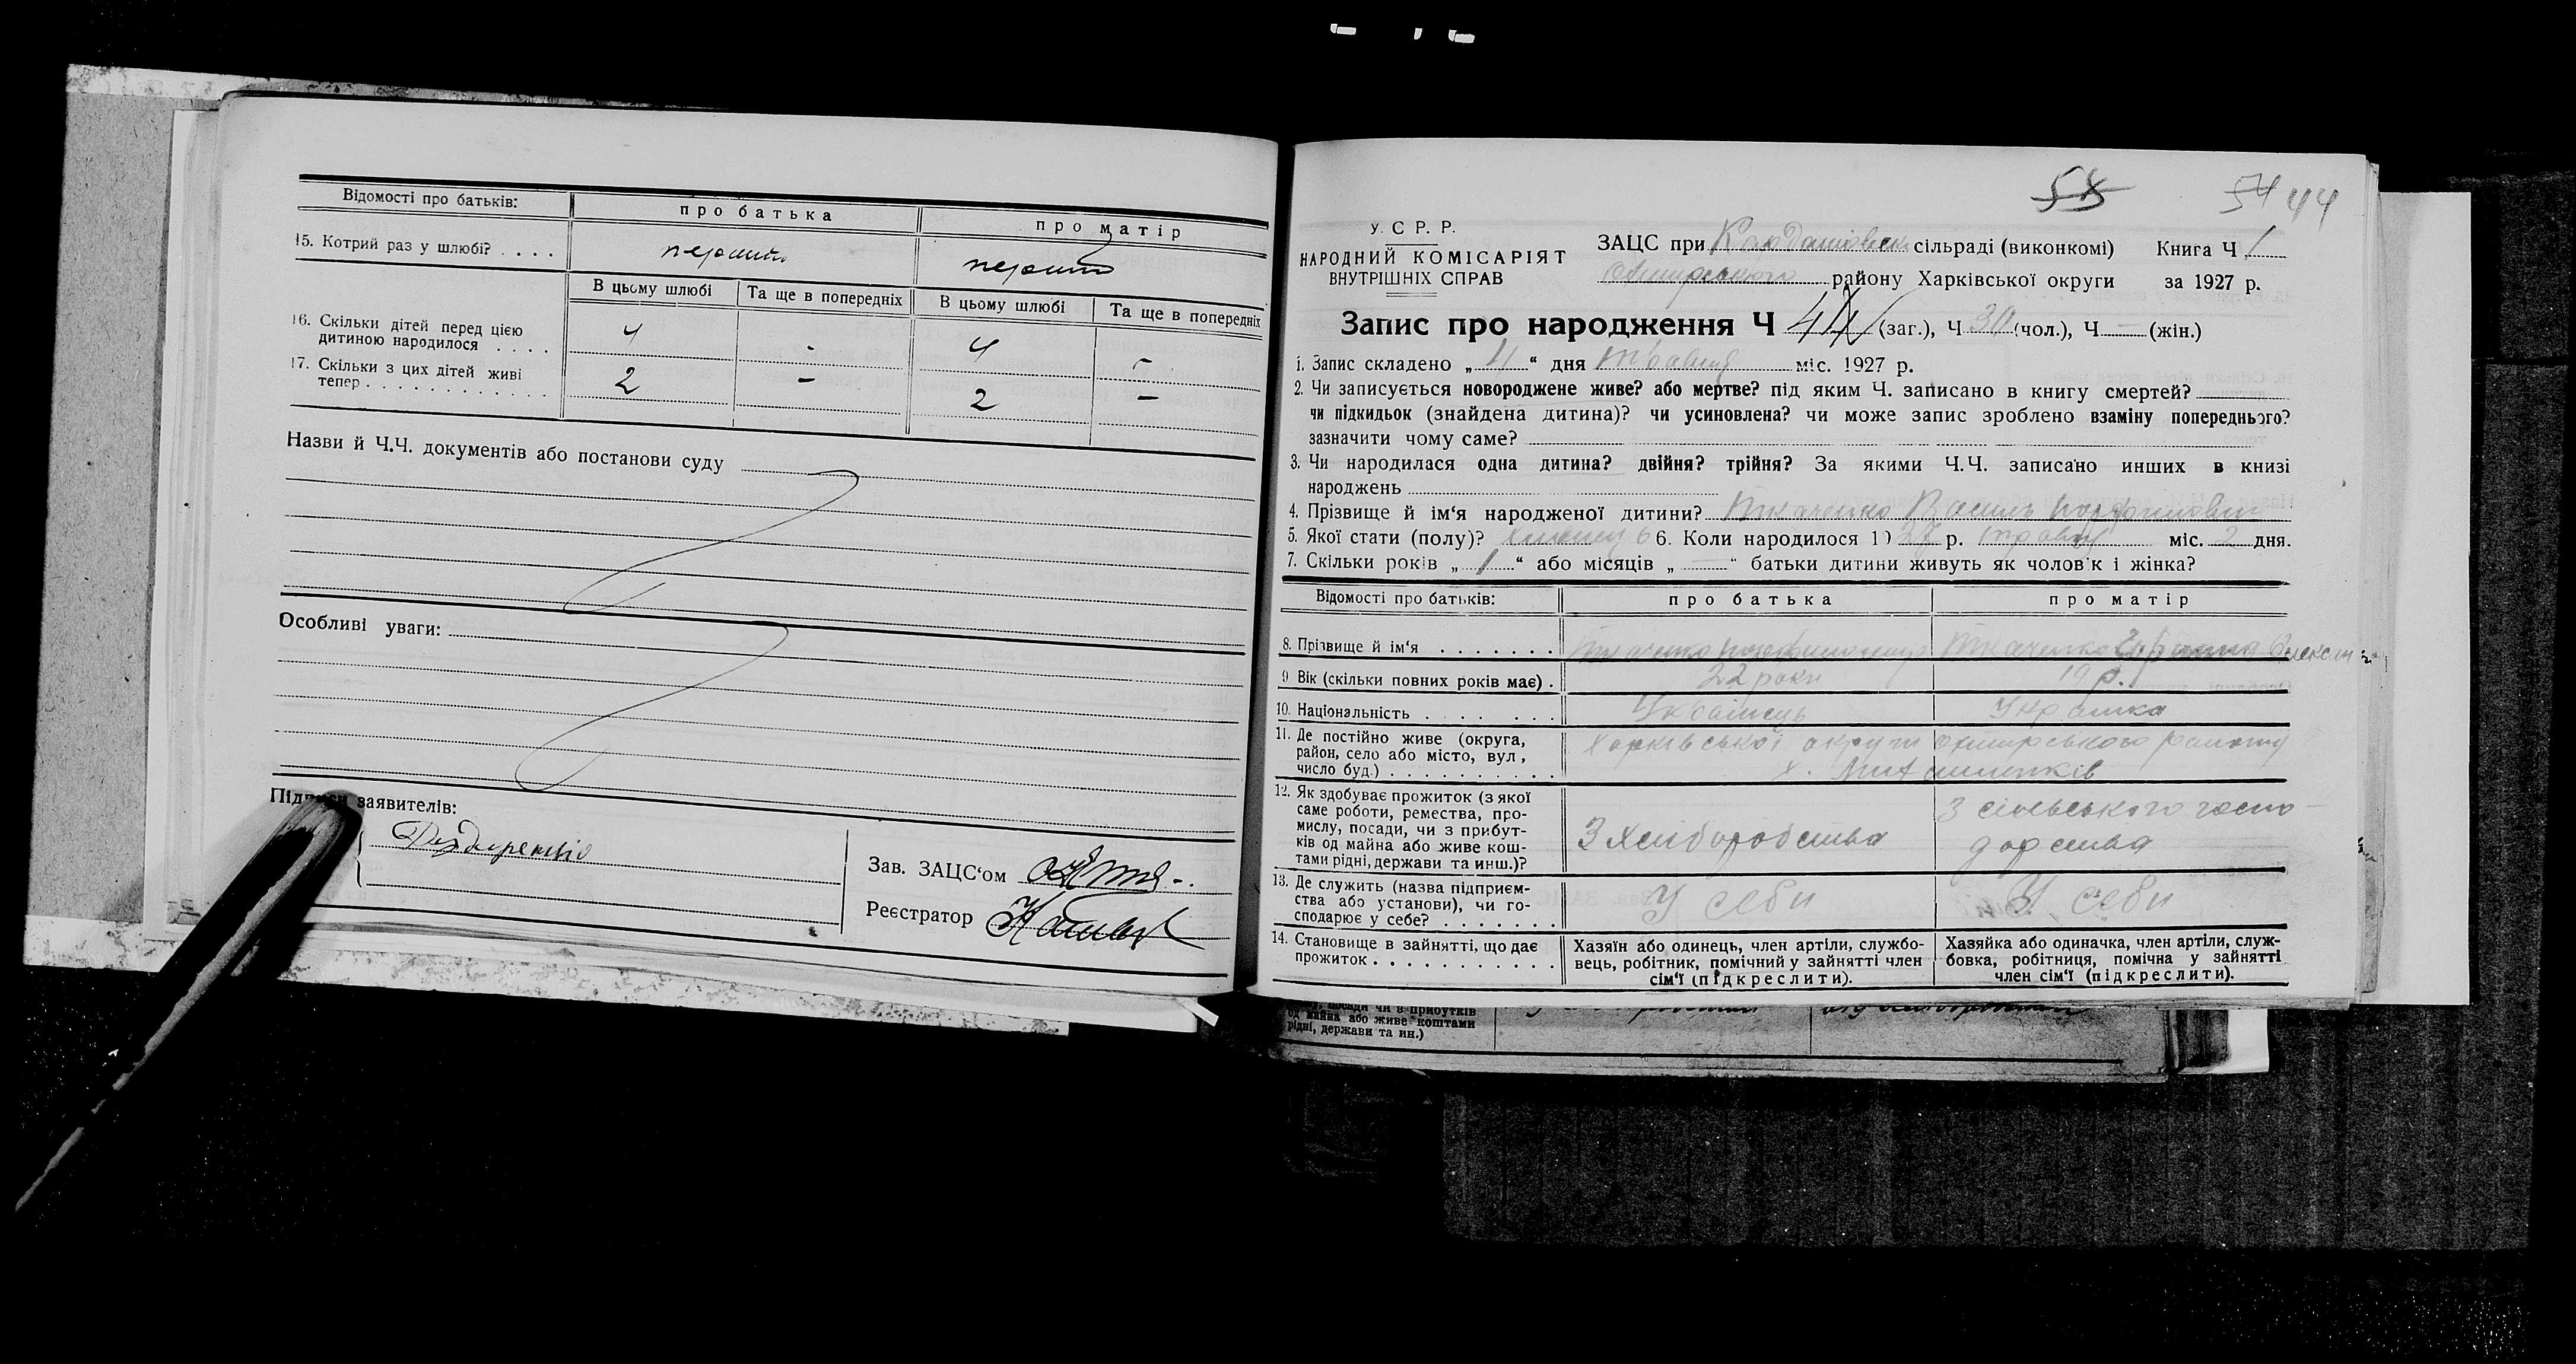 Відомості про батьків:
про батька
про матір
15. Котрий раз у шлюбі? . . . .
перший
перший
В цьому шлюбі
Та ще в попередніх
В цьому шлюбі
Та ще в попередніх
16. Скільки дітей перед цією
дитиною народилося . . . .
4
-
4
-
17. Скільки з цих дітей живі
тепер . . . . . . . . . . . .
2
-
2
-
Назви й Ч.Ч. документів або постанови суду
Особливі уваги:
заявителів:
Зав. ЗАЦС'ом
Реєстратор
58
54 44
У. С Р. Р.
НАРОДНИЙ КОМІСАРІЯТ
ВНУТРІШНІХ СПРАВ
ЗАЦС при сільраді (виконкомі) Книга Ч 1
району Харківської округи за 1927 р.
Запис про народження Ч (заг.), Ч (чол.), Ч — (жін.)
1. Запис складено „ “ дня травня міс. 1927 р.
2. Чи записується новороджене живе? або мертве? під яким Ч. записано в книгу смертей?
чи підкидьок (знайдена дитина)? чи усиновлена? чи може запис зроблено взаміну попереднього?
зазначити чому саме?
3. Чи народилася одна дитина? двійня? трійня? За якими Ч.Ч. записано инших в книзі
народжень
4. Прізвище й ім'я народженої дитини? Ткаченко Василь
5. Якої стати (полу)? 6. Коли народилося 19 27 р. травня міс. 2 дня.
7. Скільки років „ 1 “ або місяців „ — “ батьки дитини живуть як чоловік і жінка?
Відомості про батьків:
про батька
про матір
8. Прізвище й ім'я . . . . . . .
Ткаченко
Ткаченко
9 Вік (скільки повних років має) .
22 роки
19 р.
10. Національність . . . . . . . .
Українець
Українка
11. Де постійно живе (округа,
район, село або місто, вул,
число буд.) . . . . . . . . . .
Харківської округи
району
х.
12. Як здобуває прожиток (з якої
саме роботи, ремества, про-
мислу, посади, чи з прибут-
ків од майна або живе кош-
тами рідні, держави та инш.)?
З хліборобства
З сільського госпо-
дарства
13. Де служить (назва підприєм-
ства або установи), чи го-
сподарює у себе? . . . . . . .
У себи
У себи
14. Становище в зайнятті, що дає
прожиток . . . . . . . . . . .
Хазяїн або одинець, член артіли, службо-
вець, робітник, помічний у зайнятті член
сім'ї (підкреслити).
Хазяйка або одиначка, член артіли, служ-
бовка, робітниця, помічна у зайнятті
член сім'ї (підкреслити).
посади чи в прибутків
од майна або живе коштами
рідні, держави та ин.)